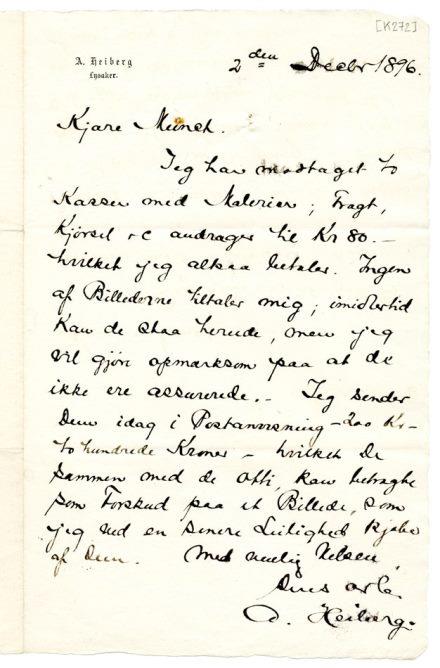 [K272]
A. Heiberg
Lysaker.
2den Decbr 1896.
Kjære Munch.
Jeg har modtaget to
Kasser med Malerier; Fragt,
Kjørsel &c andrager til Kr 80.—
hvilket jeg altsaa betaler. Ingen
af Billederne tiltaler mig; imidlertid
kan de staa herude, men jeg
vil gjøre opmærksom paa at de
ikke ere assurerede.— Jeg sender
Dem idag i Postanvisning — 200 Kr —
to hundrede Kroner — hvilket De
sammen med de otti, kan betragte
som Forskud paa et Billede, som
jeg ved en senere Leilighed kjøber
af Dem. Med venlig Hilsen
Deres
A. Heiberg.